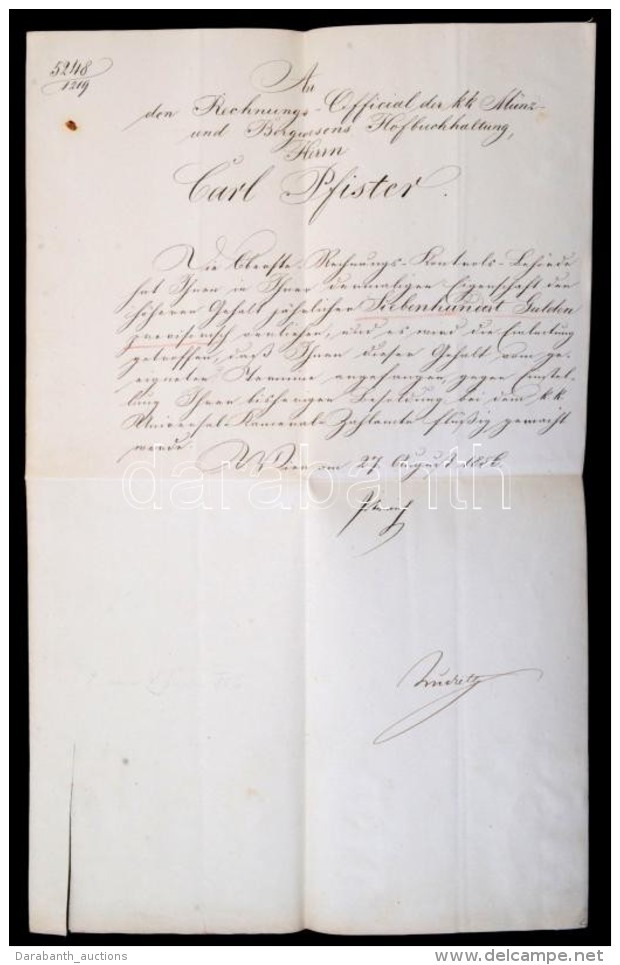 5248
1219
An
den Rechnungs-Official der kk Münz-
und Bergwesens Hofbuchhaltung,
Herrn
Carl Pfister.
Die Oberste Rechnungs-Kontrols-Behörde
hat Ihnen in Ihrer dermaligen Eigenschaft den
höheren Gehalt jährlicher Siebenhundert Gulden
provisorisch verliehen, und es wird die Einleitung
getroffen, daß Ihnen dieser Gehalt vom ge-
eigneten Termine angefangen gegen Einstel-
lung Ihrer bisherigen Besoldung bei dem k.k.
Universal-Kameral-Zahlamte flüßig gemacht
werde.
Wien am 27. August 1856.
darabanth
Darabanth_auctions
www.delcampe.net